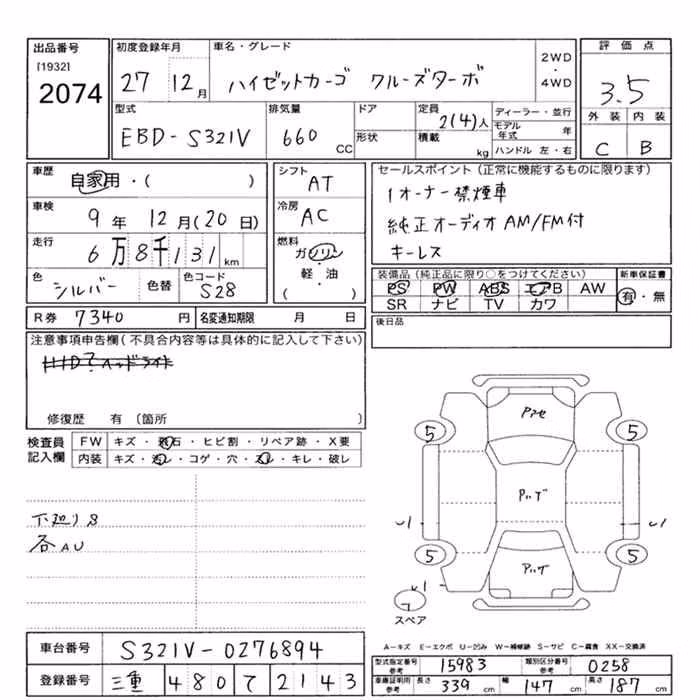 出品番号 [1932] 2074
初度登録年月 27 12月
車名・グレード ハイゼットカーゴ クルーズターボ
2WD・4WD
評価点 3.5
外装 C 内装 B
型式 EBD-S321V
排気量 660 CC
ドア 形状
定員 2(4)人
積載 kg
ディーラー・並行
モデル年式 年
ハンドル 左・右
車歴 自家用・( )
車検 9年 12月(20日)
走行 6万8千131km
色 シルバー 色替 色コード S28
シフト AT
冷房 AC
燃料 ガソリン・軽・油 ( )
セールスポイント(正常に機能するものに限ります)
1オーナー禁煙車
純正オーディオAM/FM付
キーレス
装備品(純正品に限り○をつけてください)
PS PW ABS エアB AW
SR ナビ TV カワ
新車保証書 有・無
R券 7340円 名変通知期限 月 日
後日品
注意事項申告欄(不具合内容等は具体的に記入して下さい)
HID?ヘッドライト
修復歴 有 〔箇所 〕
検査員記入欄
FW キズ・飛石・ヒビ割・リペア跡・X要
内装 キズ・汚レ・コゲ・穴・スレ・キレ・破レ
下廻りS
各AU
5 5
5 5
U1 U1
U1
スペア
A-キズ E-エクボ U-凹み W-補修跡 S-サビ C-腐食 XX-交換済
車台番号 S321V-0276894
登録番号 三重 480 て 2143
型式指定番号参考 15983 類別区分番号参考 0258
車庫証明用参考 長さ 339cm 幅 147cm 高さ 187cm